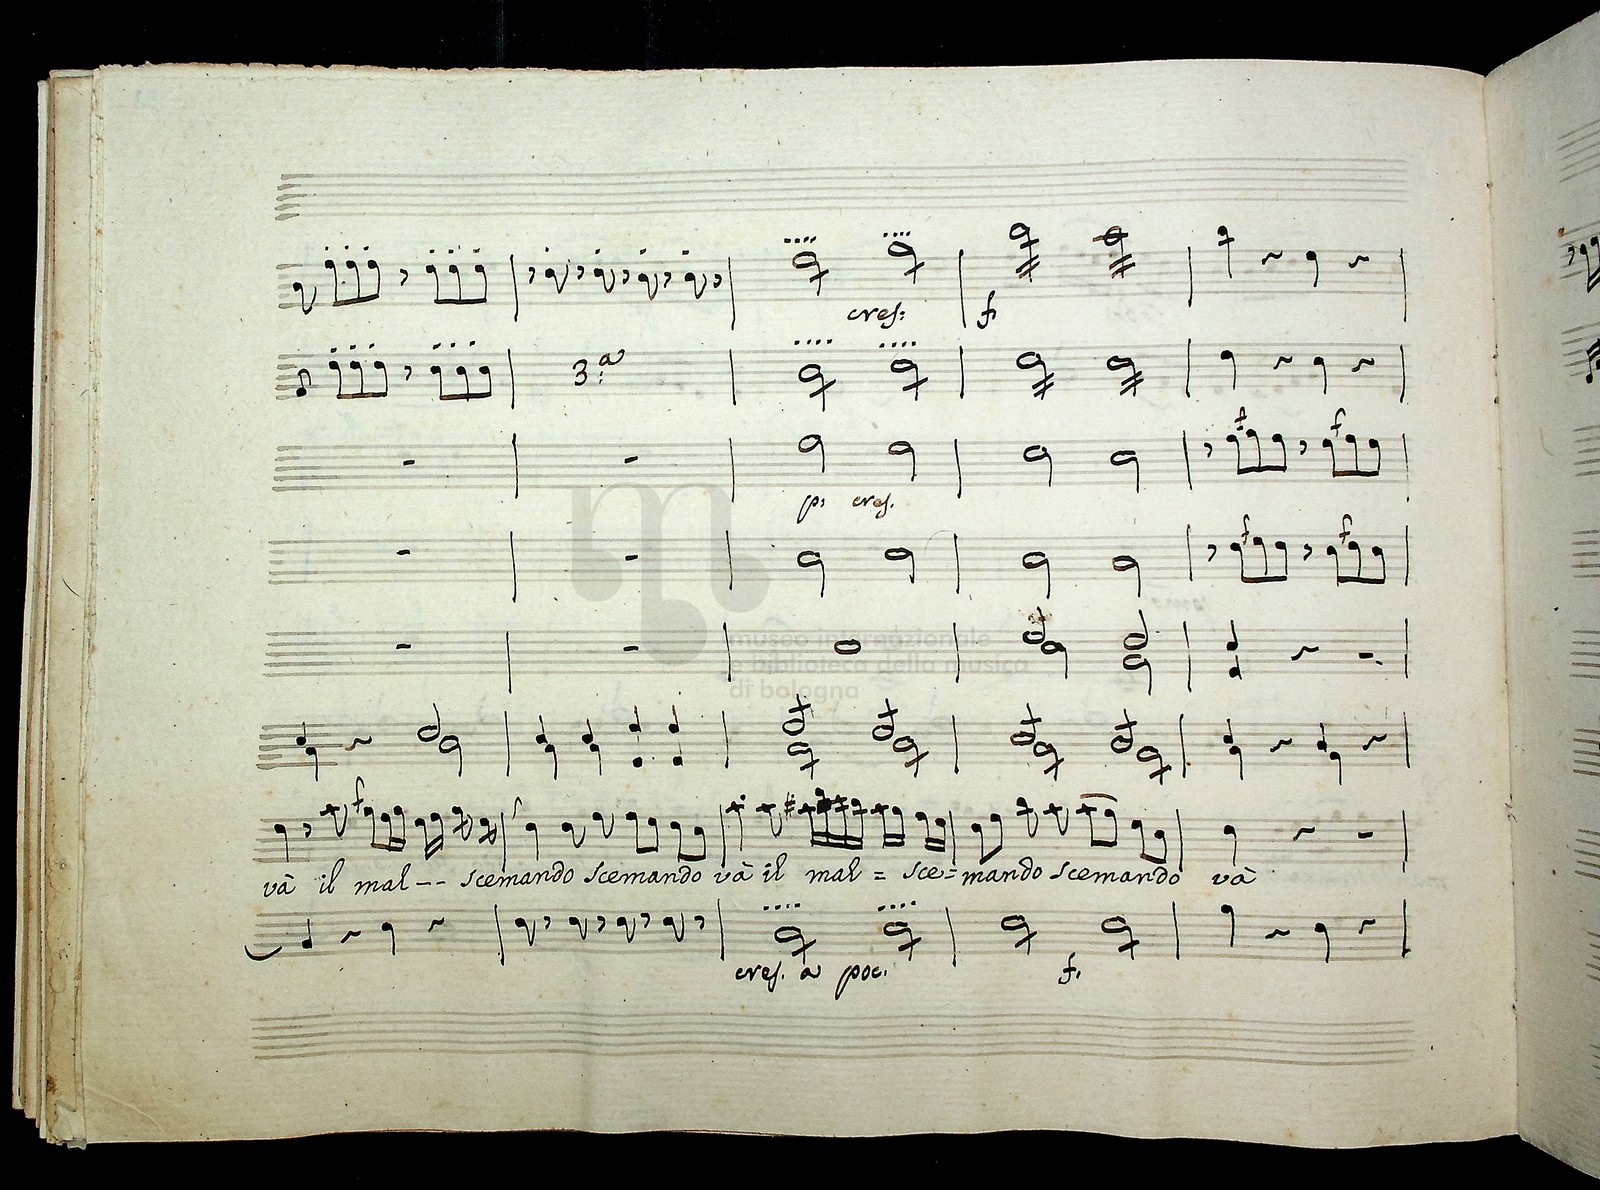 cres: f
3.a
p: cres.
museo internazionale
e biblioteca della musica
di bologna
và il mal -- scemando scemando và il mal = sce= mando scemando và
cres. a poc. f.